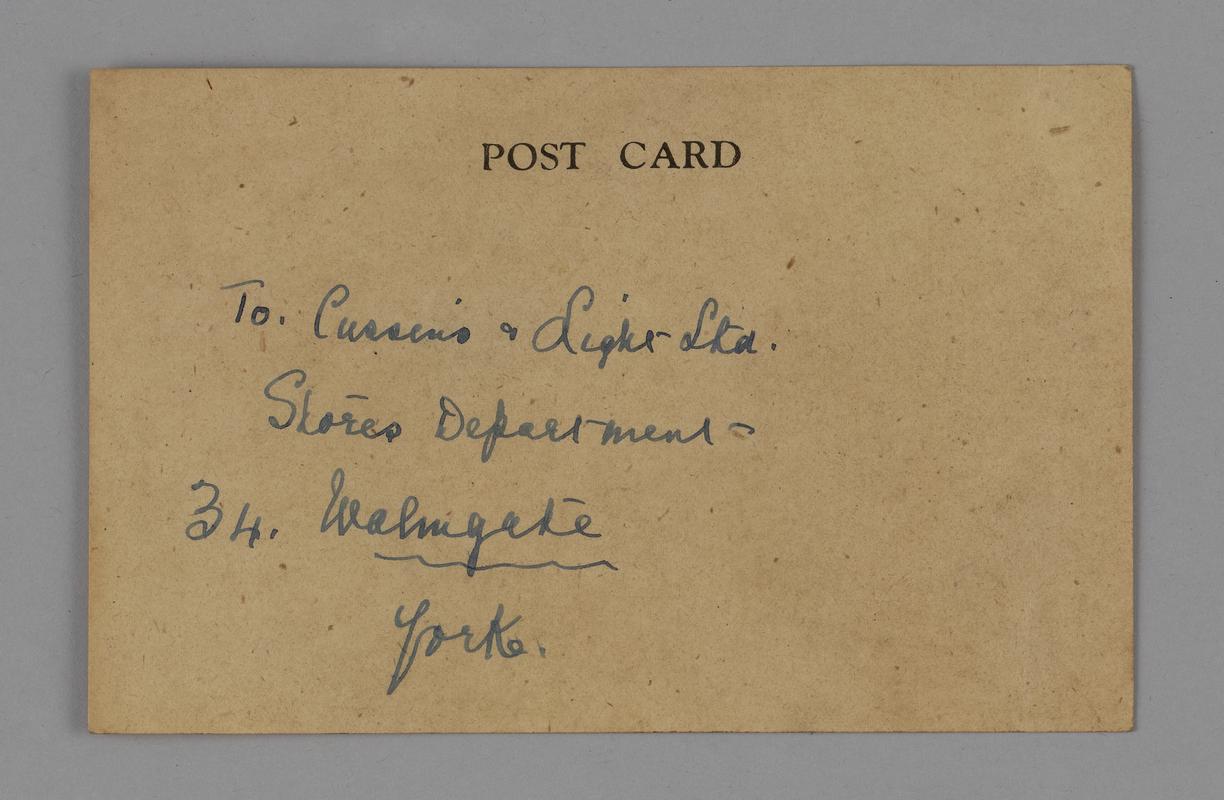 POST CARD
To. Cussins & Light Ltd.
Stores Department
34. Walmgate
York.